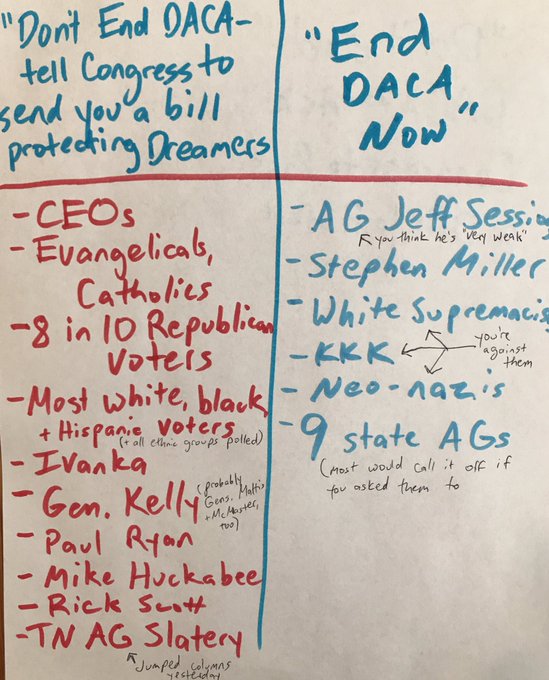 "Don't End DACA-
tell Congress to
send you a bill
protecting Dreamers
- CEOs
- Evangelicals,
Catholics
- 8 in 10 Republican
voters
- Most white, black,
+ Hispanic voters
(+ all ethnic groups polled)
- Ivanka
- Gen. Kelly
(probably
Gens. Mattis
+ McMaster,
too)
- Paul Ryan
- Mike Huckabee
- Rick Scott
- TN AG Slatery
Jumped columns
yesterday
"End
DACA
Now"
- AG Jeff Session
you think he's "very weak"
- Stephen Miller
- White Supremacis
- KKK
you're
against
them
- Neo-nazis
- 9 state AGs
(most would call it off if
you asked them to